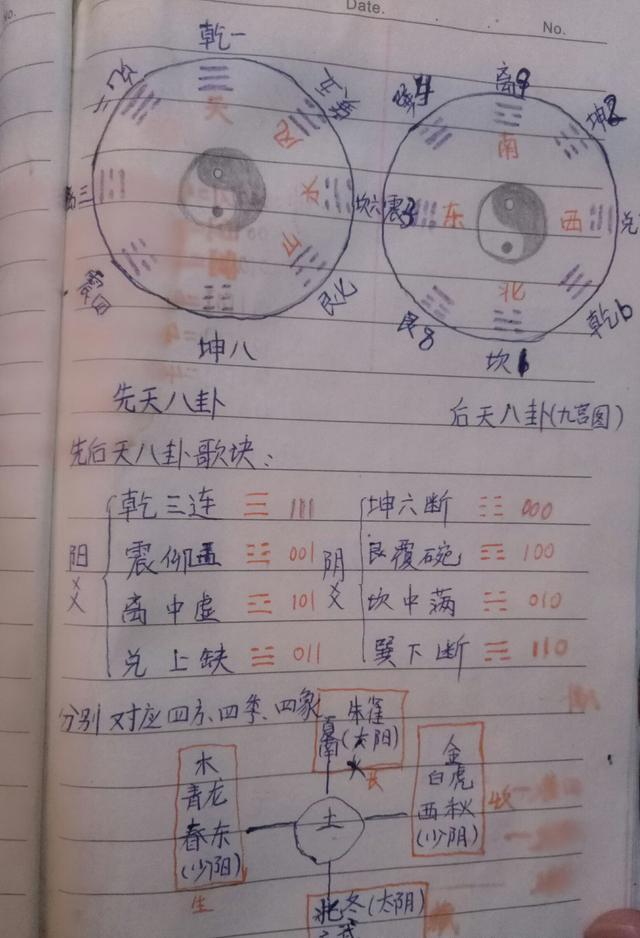 Date.
No.
乾一
离9
坤2
天
南
水
坎六
震3
东
西
兑
山
北
艮七
艮8
乾6
坤八
坎1
先天八卦
后天八卦(九宫图)
先后天八卦歌块:
乾三连 ☰ 111 坤六断 ☷ 000
震仰盂 ☳ 001 艮覆碗 ☶ 100
阳爻 阴爻
离中虚 ☲ 101 坎中满 ☵ 010
兑上缺 ☱ 011 巽下断 ☴ 110
分别对应四方、四季、四象
夏南 朱雀
(太阳)
火
长
木
青龙
春东
(少阳)
生
土
金
白虎
西秋
(少阴)
收
北冬(太阴)